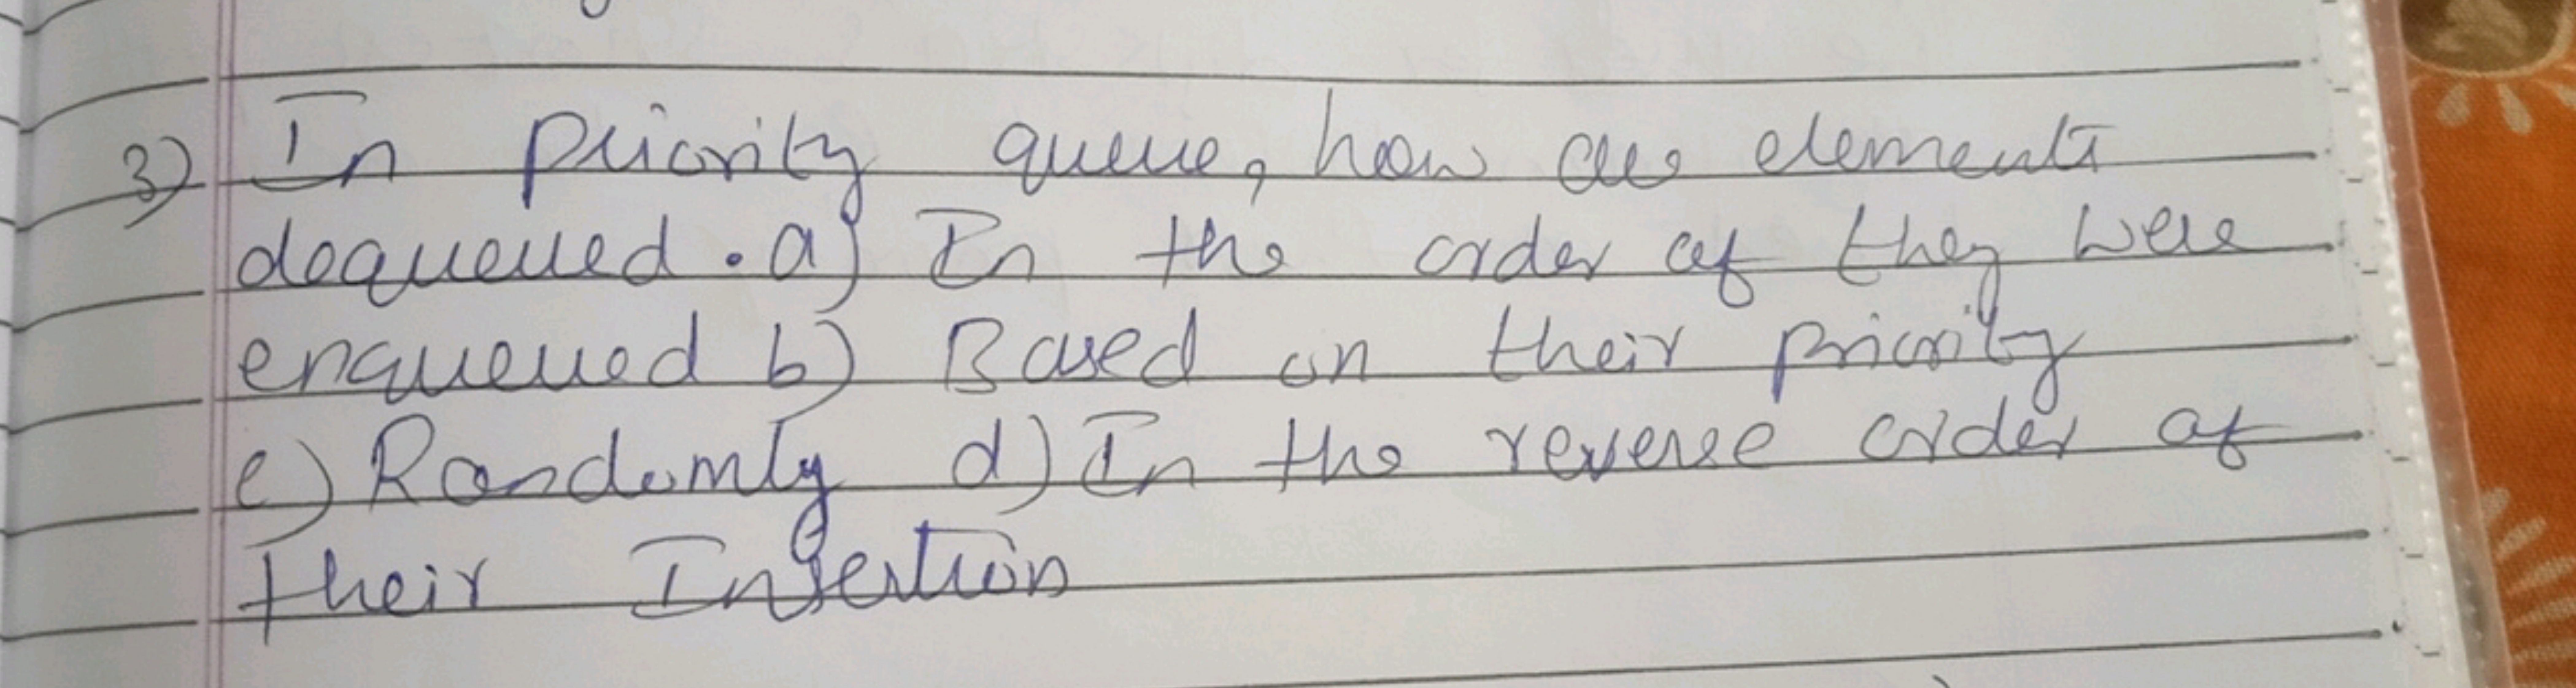 3) In priority queue, how are elements
dequeued. a) In the order of they were
enqueued b) Based on their priority
c) Randomly d) In the reverse order of
their Insertion